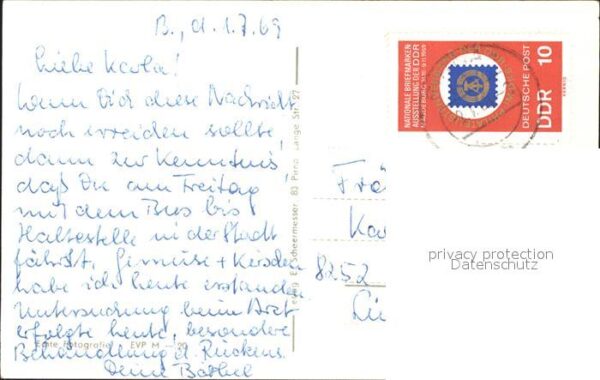 B., d. 1.7.69
Liebe Karla!
Wenn Dich diese Nachricht
noch erreichen sollte
dann zur Kenntnis,
daß Du am Freitag
mit dem Bus bis
Haltestelle in der Stadt
fährst. Gemüse + Kirschen
habe ich heute erstanden.
Untersuchung beim Arzt
erfolgte heute, besondere
Behandlung d. Rückens.
Deine Bärbel
Echte Fotografie EVP M —20
Scheermesser 83 Pirna Lange Str. 27
NATIONALE BRIEFMARKEN-
AUSSTELLUNG DER DDR
MAGDEBURG 31.10.-9.11.1969
DEUTSCHE POST
DDR 10
8252
privacy protection
Datenschutz